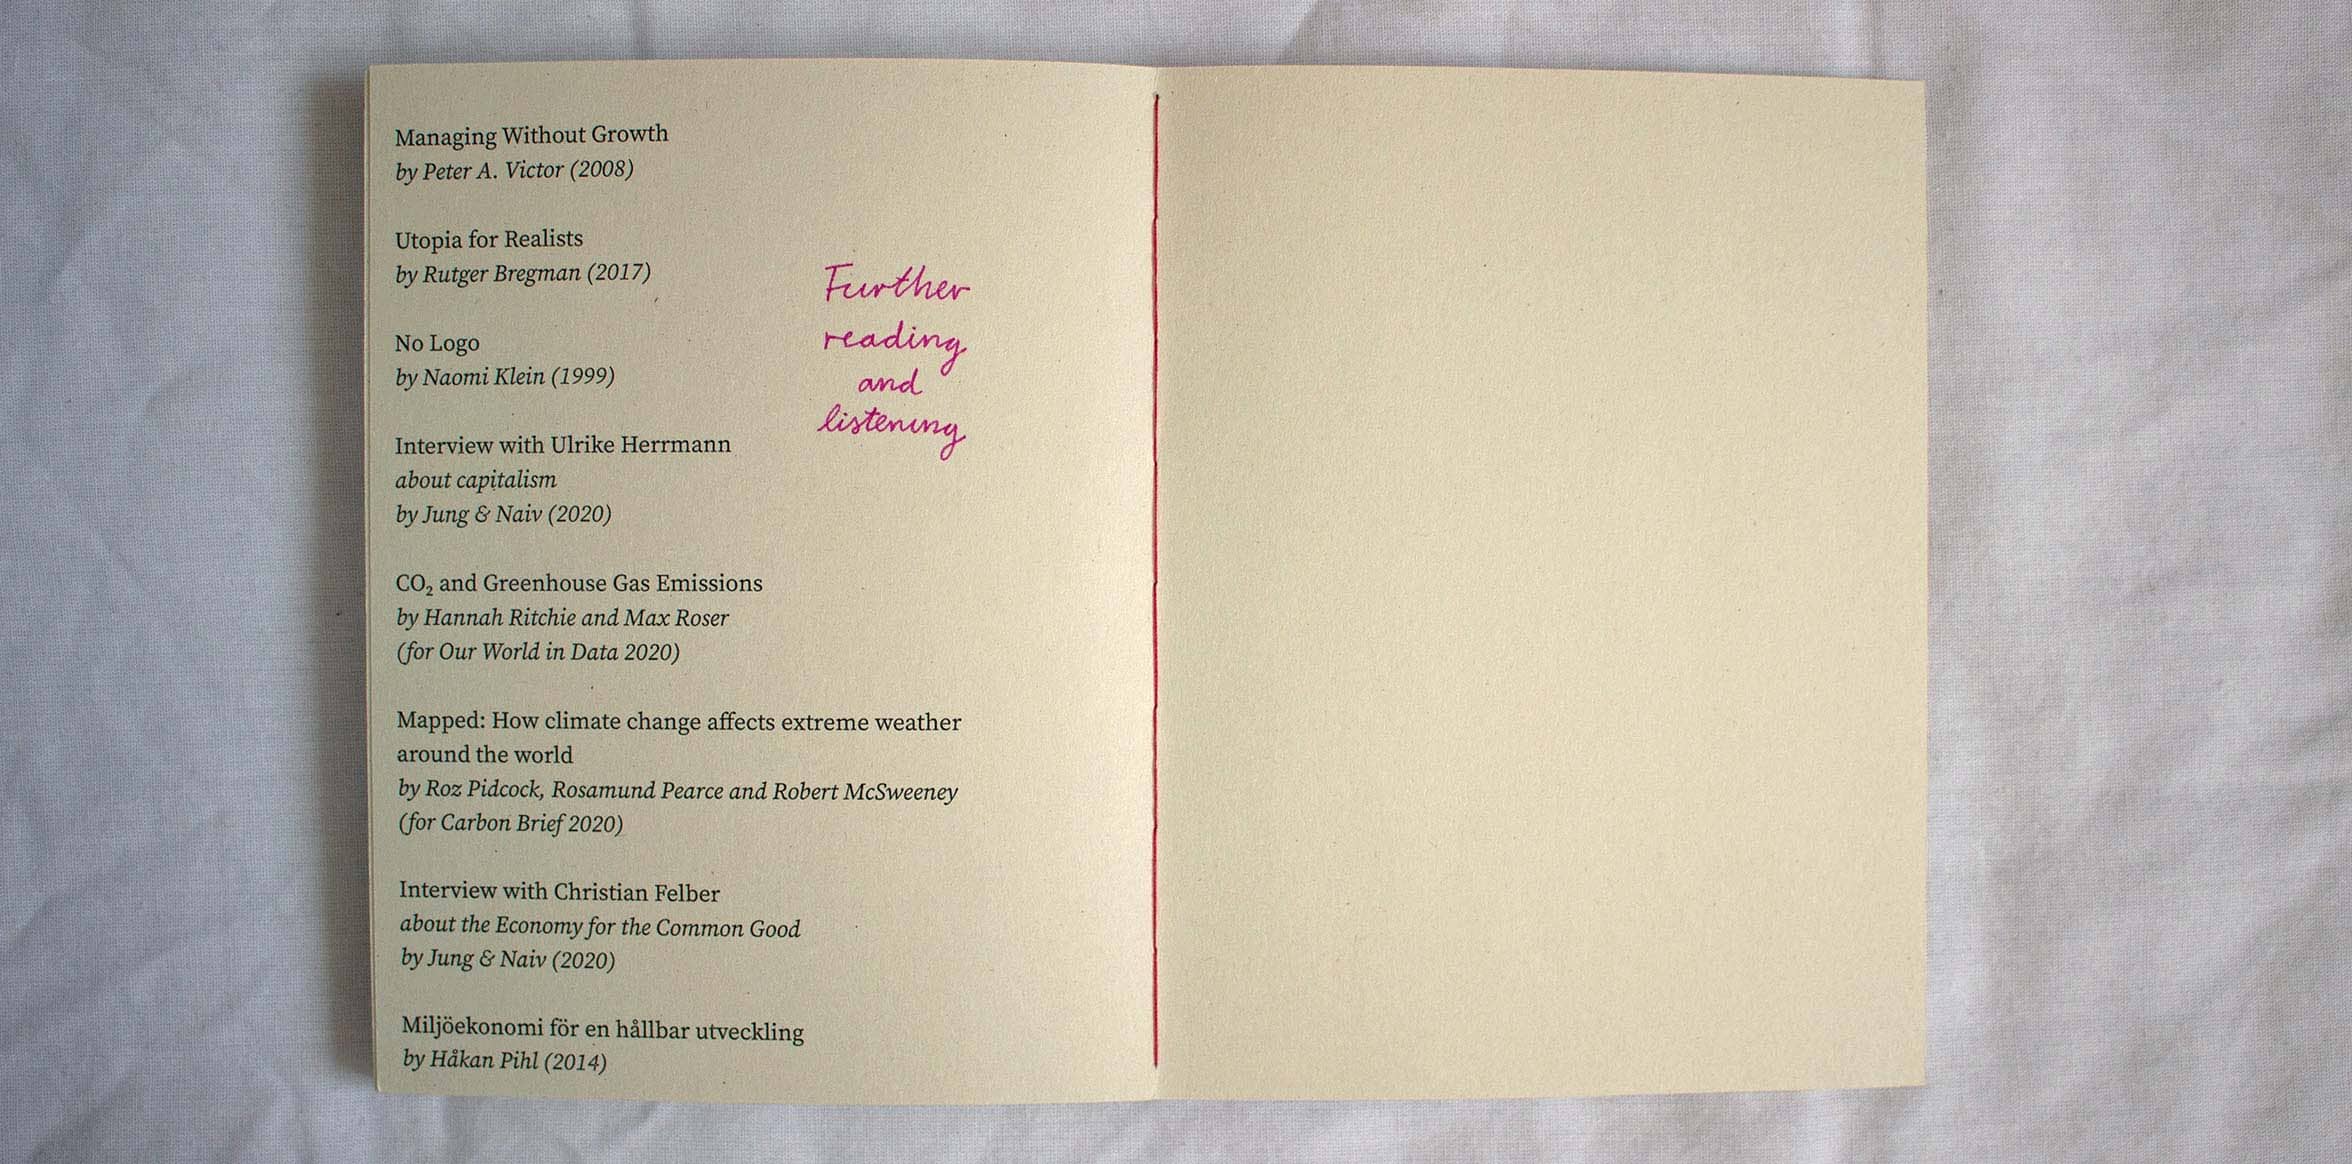 Managing Without Growth
by Peter A. Victor (2008)
Utopia for Realists
by Rutger Bregman (2017)
No Logo
by Naomi Klein (1999)
Interview with Ulrike Herrmann
about capitalism
by Jung & Naiv (2020)
CO₂ and Greenhouse Gas Emissions
by Hannah Ritchie and Max Roser
(for Our World in Data 2020)
Mapped: How climate change affects extreme weather
around the world
by Roz Pidcock, Rosamund Pearce and Robert McSweeney
(for Carbon Brief 2020)
Interview with Christian Felber
about the Economy for the Common Good
by Jung & Naiv (2020)
Miljöekonomi för en hållbar utveckling
by Håkan Pihl (2014)
Further
reading
and
listening